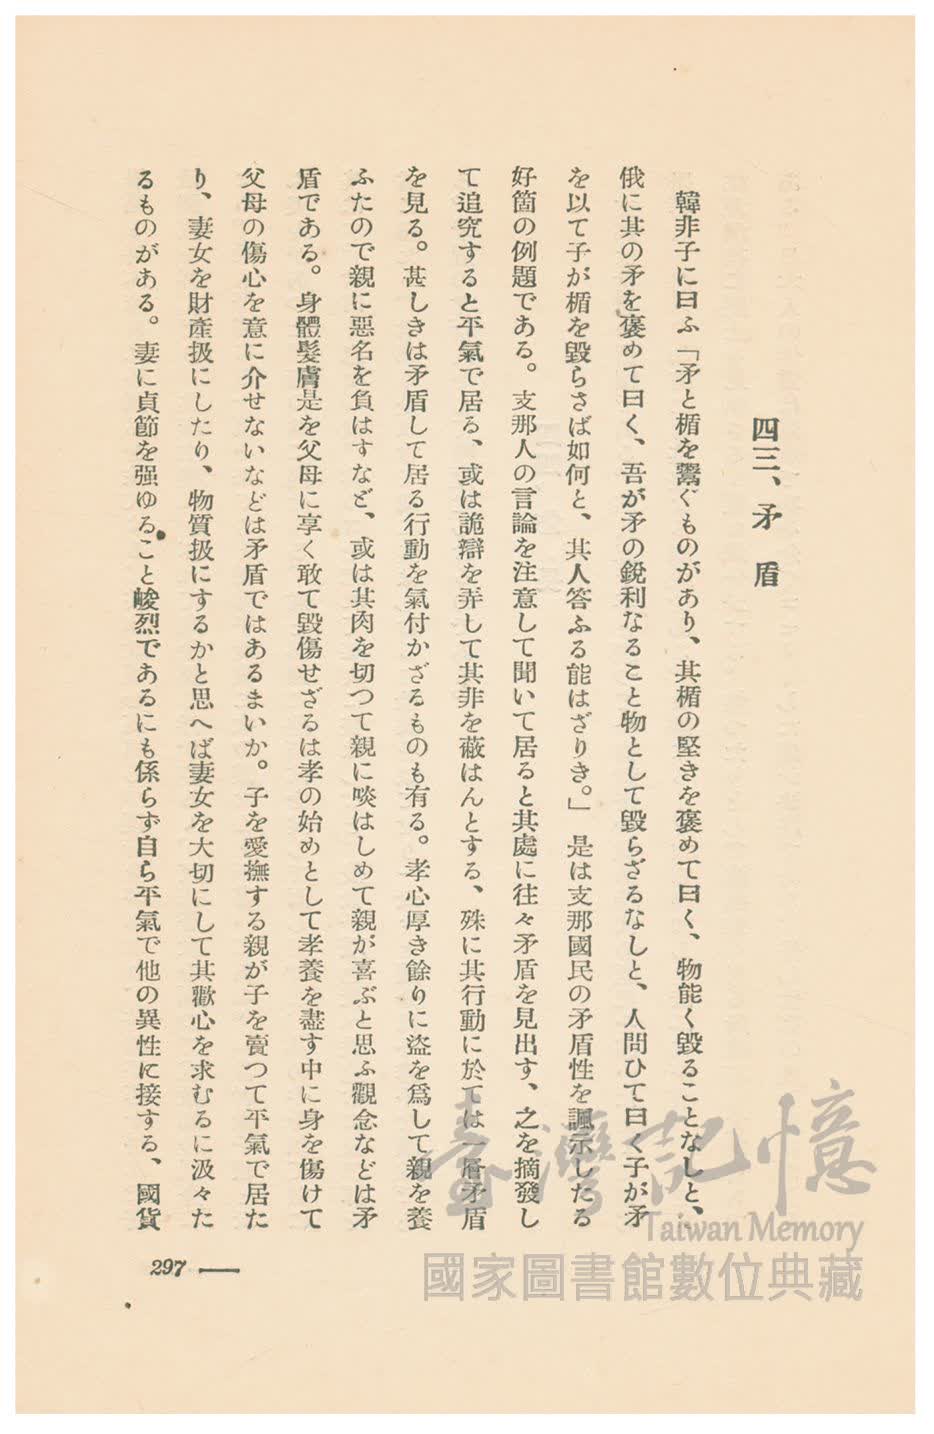 四三、矛盾
韓非子に曰ふ「矛と楯を鬻ぐものがあり、其楯の堅きを褒めて曰く、物能く毀ることなしと、
俄に其の矛を褒めて曰く、吾が矛の銳利なること物として毀らざるなしと、人問ひて曰く子が矛
を以て子が楯を毀らさば如何と、其人答ふる能はざりき。」是は支那國民の矛盾性を諷示したる
好箇の例題である。支那人の言論を注意して聞いて居ると其處に往々矛盾を見出す、之を摘發し
て追究すると平氣で居る、或は詭辯を弄して其非を蔽はんとする、殊に其行動に於ては一層矛盾
を見る。甚しきは矛盾して居る行動を氣付かざるものも有る。孝心厚き餘りに盜を爲して親を養
ふたので親に惡名を負はすなど、或は其肉を切つて親に啖はしめて親が喜ぶと思ふ觀念などは矛
盾である。身體髮膚是を父母に享く敢て毀傷せざるは孝の始めとして孝養を盡す中に身を傷けて
父母の傷心を意に介せないなどは矛盾ではあるまいか。子を愛撫する親が子を賣つて平氣で居た
り、妻女を財產扱にしたり、物質扱にするかと思へば妻女を大切にして其歡心を求むるに汲々た
るものがある。妻に貞節を强ゆること峻烈であるにも係らず自ら平氣で他の異性に接する、國貨
297
臺灣記憶
Taiwan Memory
國家圖書館數位典藏